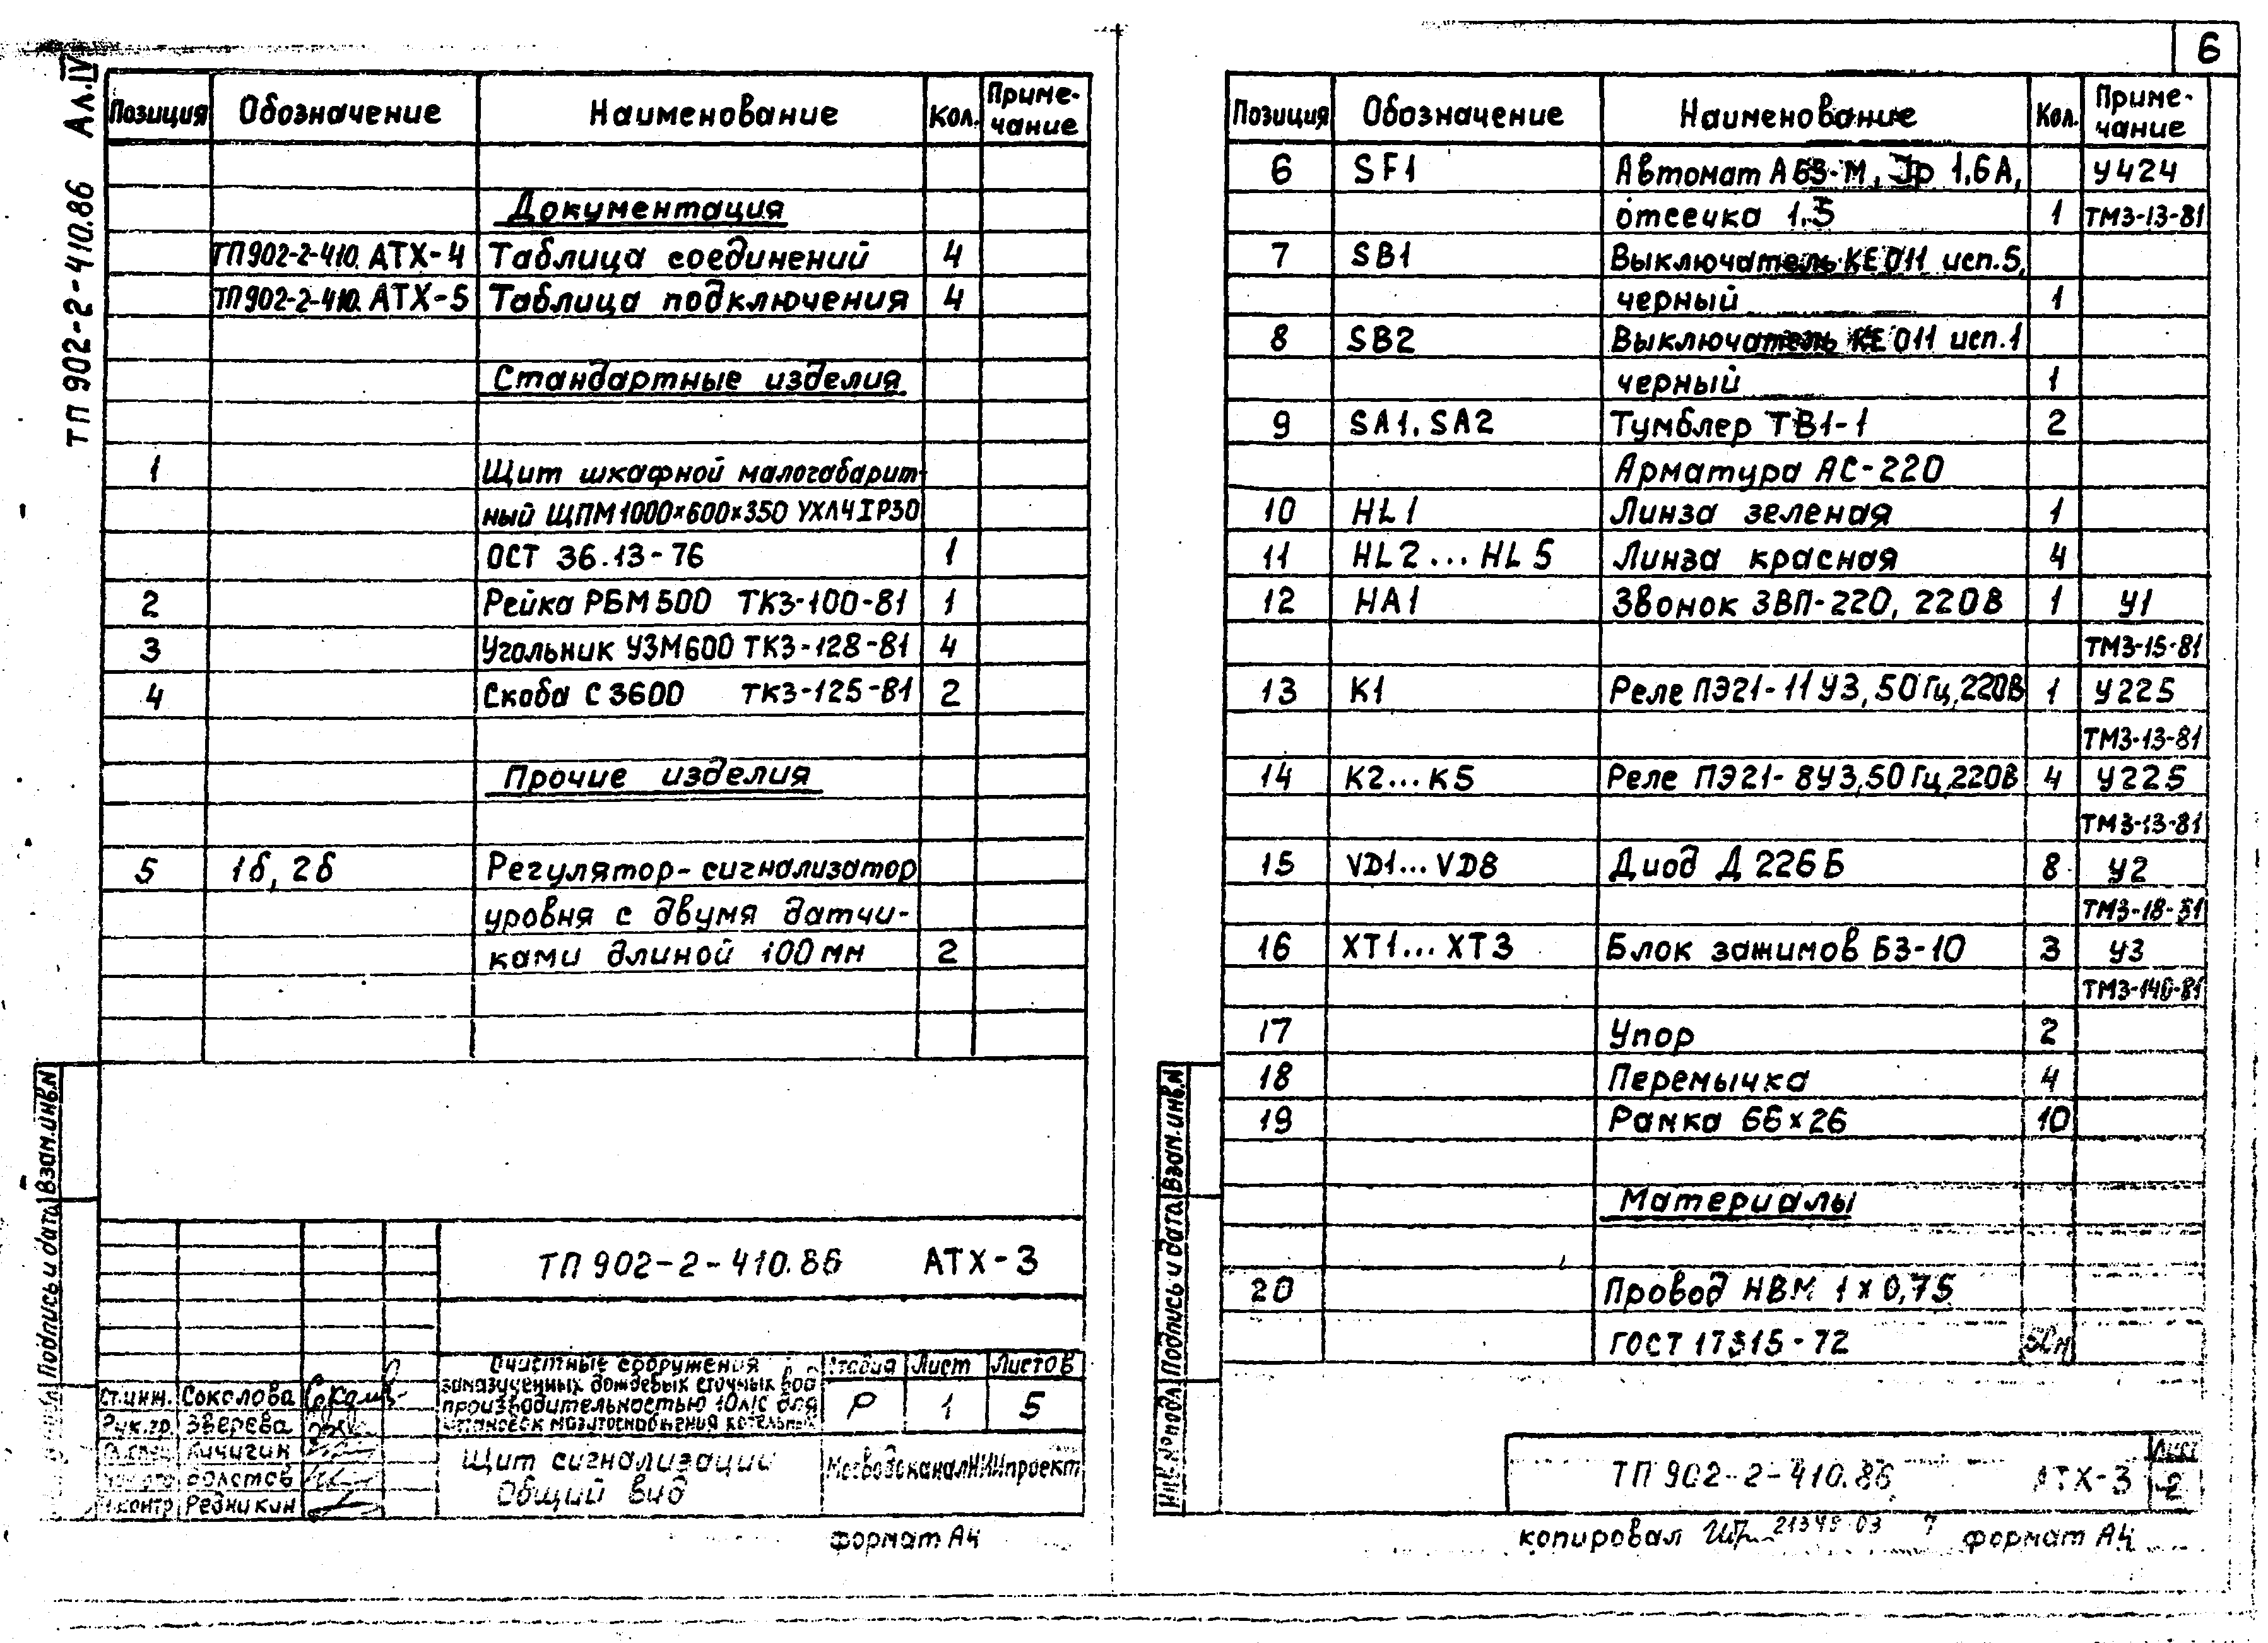 6
Ал.IV
ТП 902-2-410.86
Позиция Обозначение Наименование Кол. Приме-
чание
Документация
ТП902-2-410. АТХ-4 Таблица соединений 4
ТП902-2-410. АТХ-5 Таблица подключения 4
Стандартные изделия
1 Щит шкафной малогабарит-
ный ЩПМ1000×600×350 УХЛ4 IP30
ОСТ 36.13-76 1
2 Рейка РБМ500 ТК3-100-81 1
3 Угольник УЗМ600 ТК3-128-81 4
4 Скоба С3600 ТК3-125-81 2
Прочие изделия
5 1б, 2б Регулятор-сигнализатор
уровня с двумя датчи-
ками длиной 100мм 2
Взам.инв.N
Подпись и дата
ТП 902-2-410.86 АТХ-3
Очистные сооружения
замазученных дождевых сточных вод
производительностью 10л/с для
установок мазутоснабжения котельной
Стадия Лист Листов
Р 1 5
Ст.инж. Соколова
Рук.гр. Зверева
Кичигин
Н.контр Редникин
Щит сигнализации
Общий вид
МосводоканалНИИпроект
формат А4
Позиция Обозначение Наименование Кол. Приме-
чание
6 SF1 Автомат А63-М, Jр 1,6А, У424
отсечка 1.3 1 ТМ3-13-81
7 SB1 Выключатель КЕ011 исп.5,
черный 1
8 SB2 Выключатель КЕ011 исп.1
черный 1
9 SA1, SA2 Тумблер ТВ1-1 2
Арматура АС-220
10 HL1 Линза зеленая 1
11 HL2...HL5 Линза красная 4
12 HA1 Звонок ЗВП-220, 220В 1 У1
ТМ3-15-81
13 K1 Реле ПЭ21-11У3, 50Гц, 220В 1 У225
ТМ3-13-81
14 K2...K5 Реле ПЭ21-8У3, 50Гц, 220В 4 У225
ТМ3-13-81
15 VD1...VD8 Диод Д226Б 8 У2
ТМ3-18-81
16 XT1...XT3 Блок зажимов БЗ-10 3 У3
ТМ3-140-81
17 Упор 2
18 Перемычка 4
19 Рамка 66×26 10
Материалы
20 Провод НВМ 1×0,75
ГОСТ 17315-72
Взам.инв.N
Подпись и дата
Инв.№подл
ТП 902-2-410.86 АТХ-3 Лист
2
копировал 7 формат А4